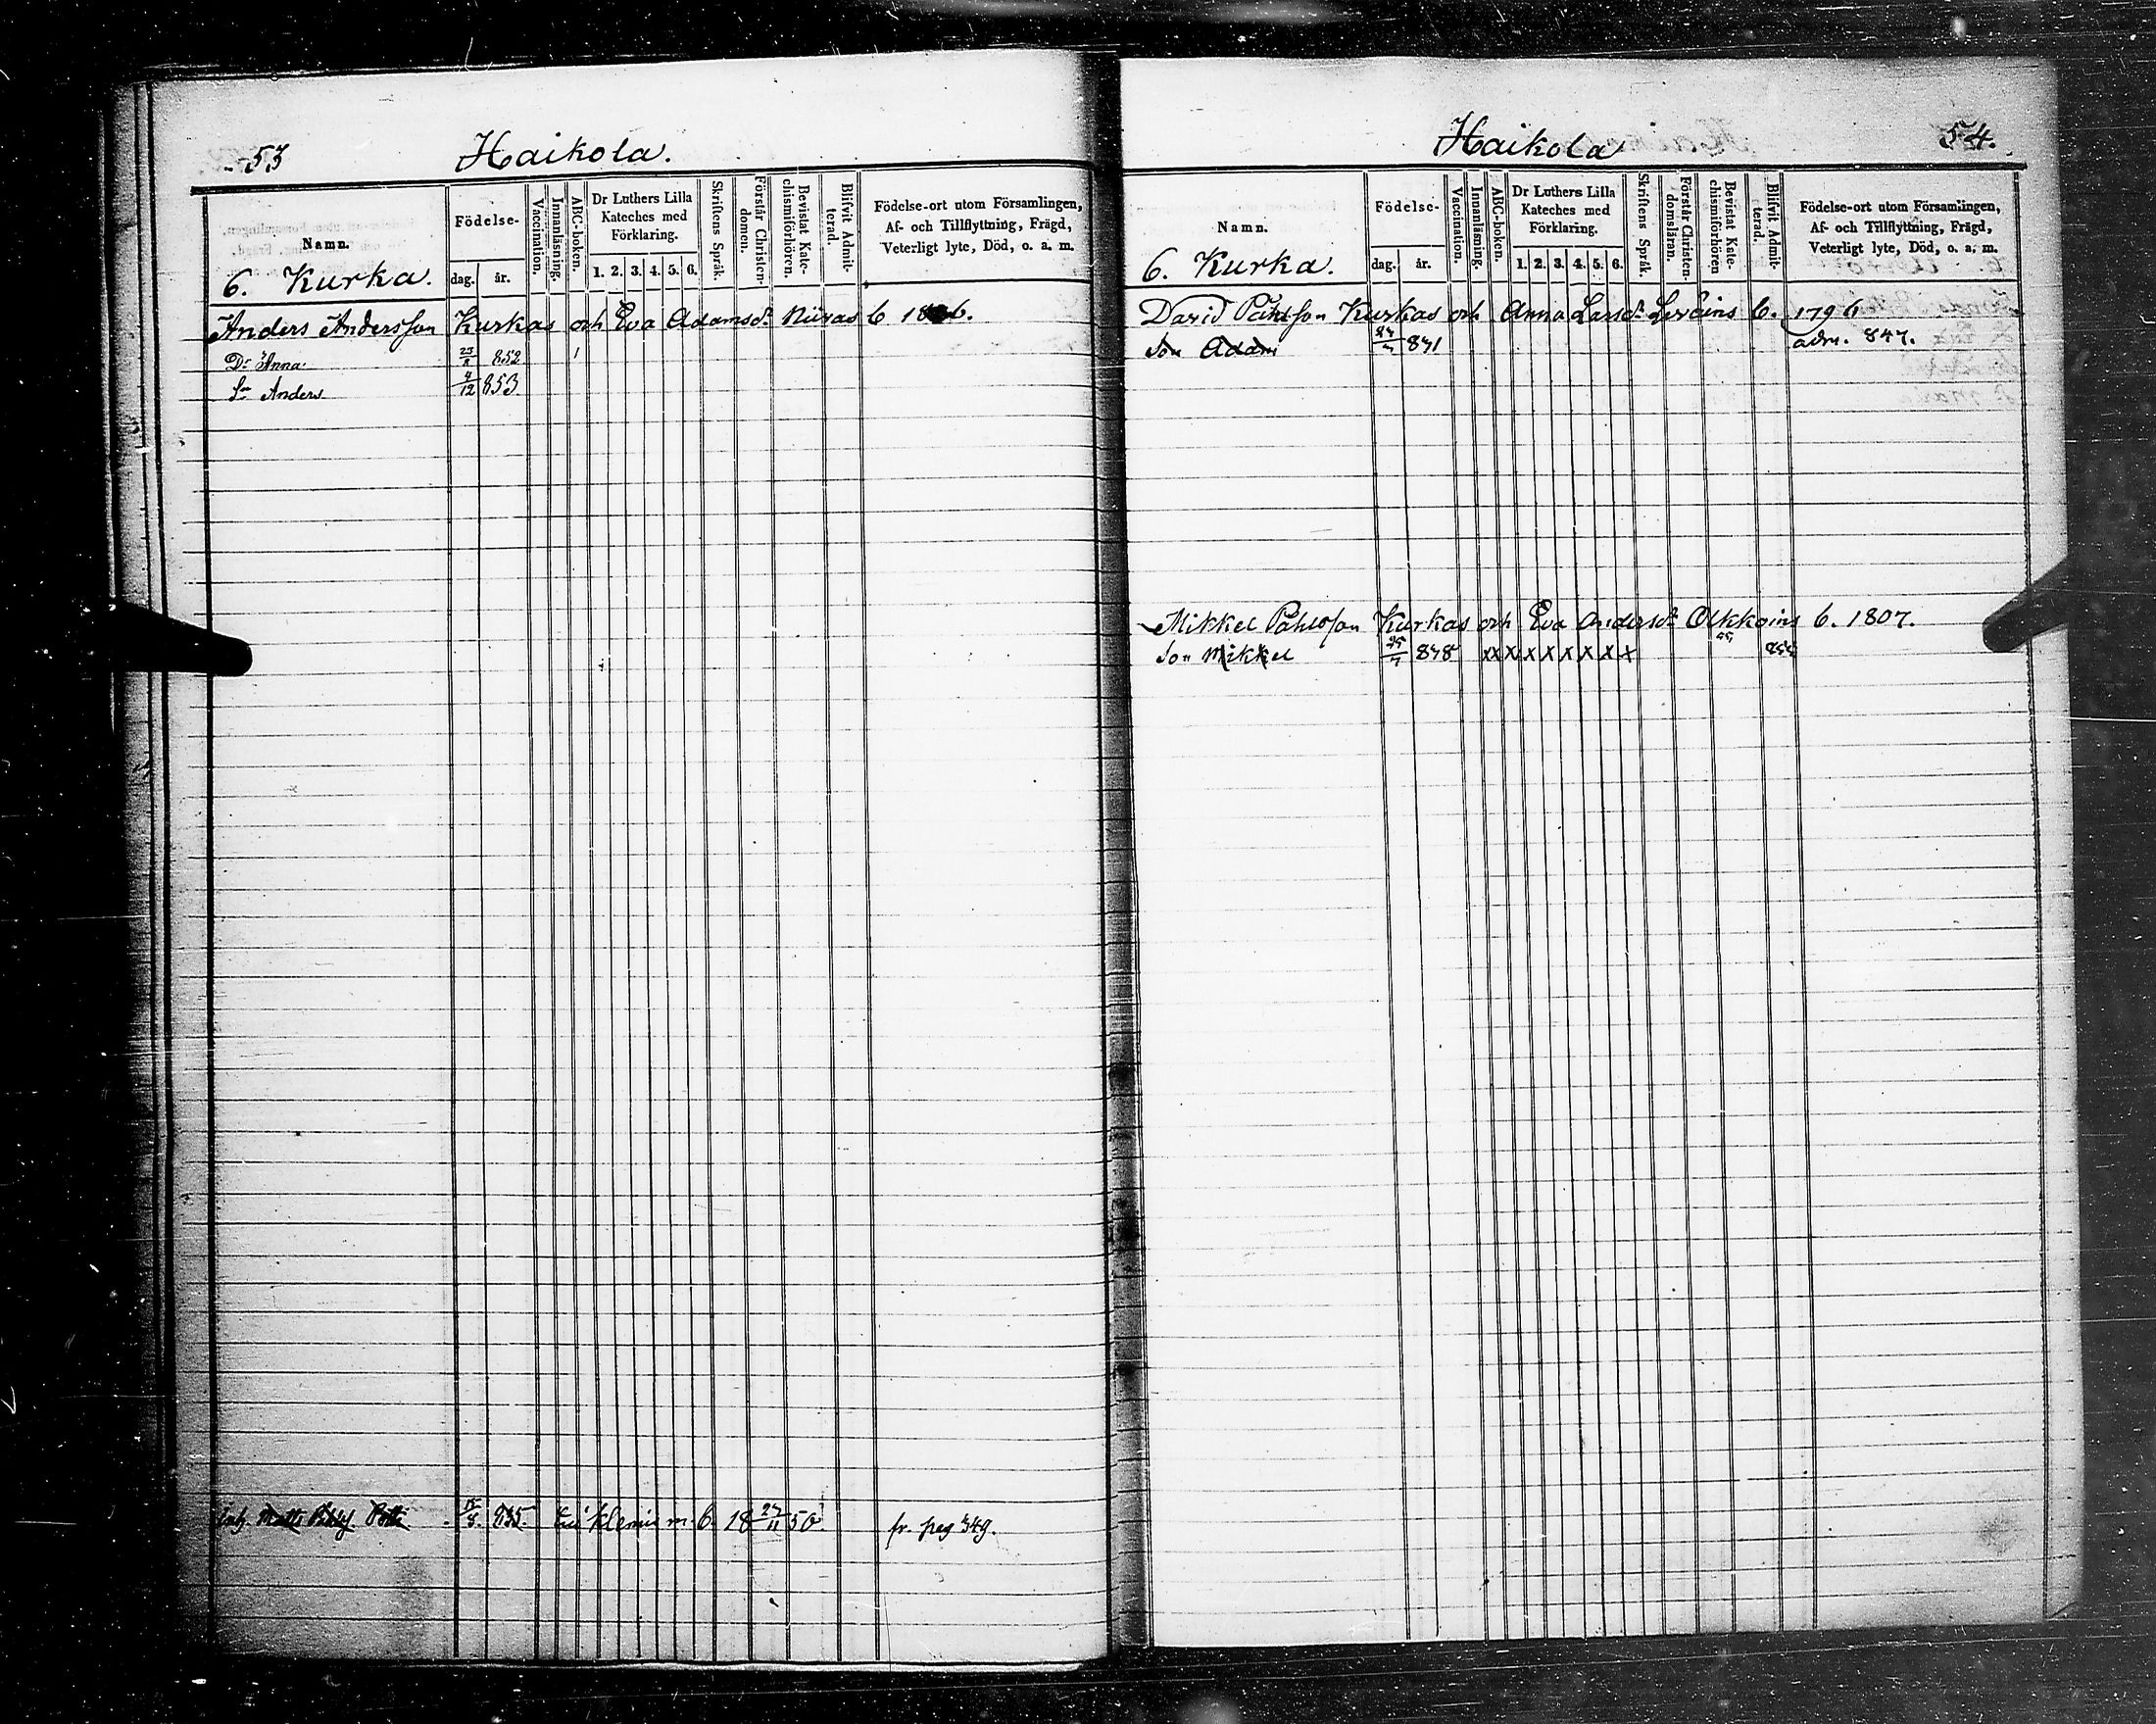 53 Haikola.
Namn. Födelse- Vaccination. Innanläsning. ABC-boken. Dr Luthers Lilla Kateches med Förklaring. Skriftens Språk. Förstår Christen-domen. Bevistat Kate-chismiförhören. Blifvit Admit-terad. Födelse-ort utom Församlingen, Af- och Tillflyttning, Frägd, Veterligt lyte, Död, o. a. m.
6. Kurka. dag. år. 1. 2. 3. 4. 5. 6.
Anders Andersson Kurkas och Eva Adamsdr b
Dr Anna 852
Sn Anders 4/12 853
inh. 15/8 835 m. b. 18 27/11 50. fr. pag 349.
Haikola 54.
Namn. Födelse- Vaccination. Innanläsning. ABC-boken. Dr Luthers Lilla Kateches med Förklaring. Skriftens Språk. Förstår Christen-domsläran. Bevistat Kate-chismiförhören Blifvit Admit-terad. Födelse-ort utom Församlingen, Af- och Tillflyttning, Frägd, Veterligt lyte, Död, o. a. m.
6. Kurka. dag. år. 1. 2. 3. 4. 5. 6.
David Påhlsson Kurkas och Anna Larsdr b. 1796
Son Adam 831 adm. 847.
Mikkel Påhlsson Kurkas och Eva Andersdr Olkkoins b. 1807.
Son Mikkel 838 x x x x x x x x x